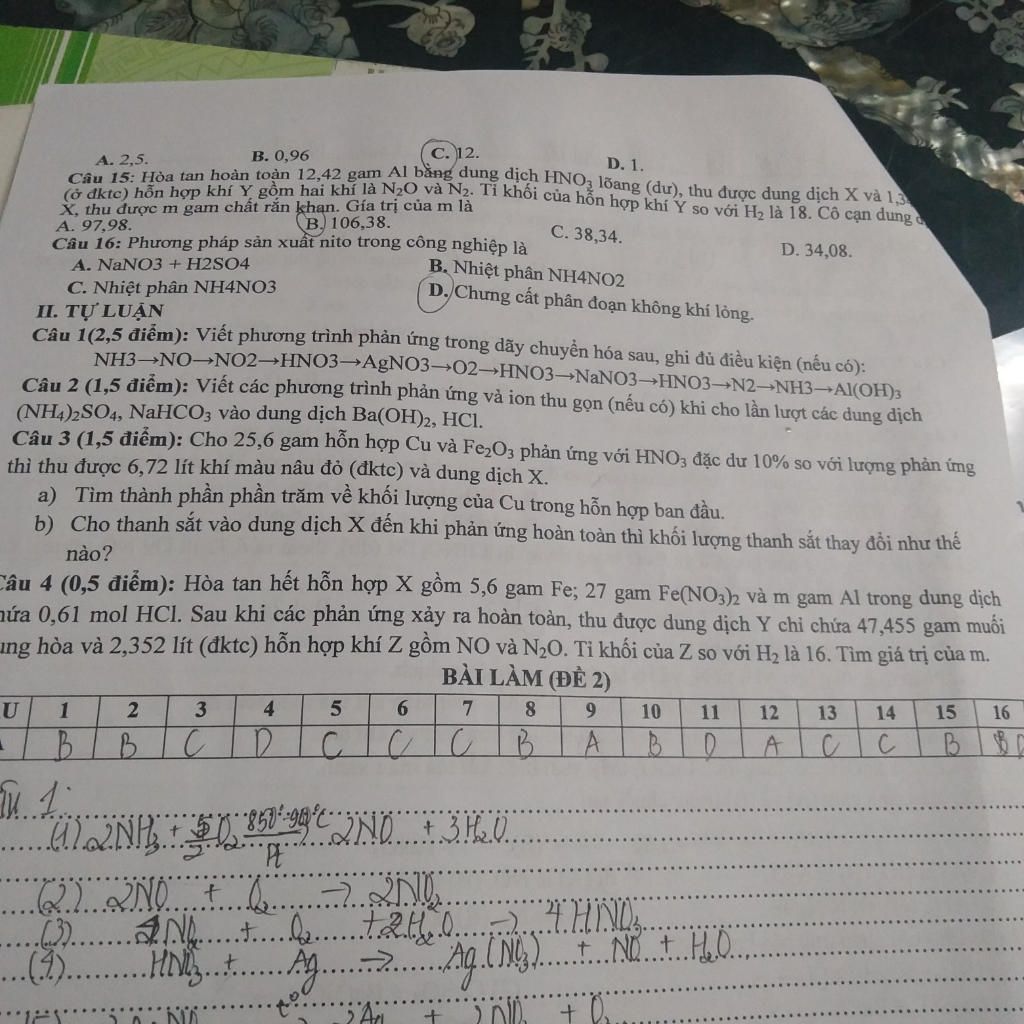 A. 2,5. B. 0,96 C. 12. D. 1.
Câu 15: Hòa tan hoàn toàn 12,42 gam Al bằng dung dịch HNO3 lõang (dư), thu được dung dịch X và
(ở đktc) hỗn hợp khí Y gồm hai khí là N2O và N2. Tỉ khối của hỗn hợp khí Y so với H2 là 18. Cô cạn dung
X, thu được m gam chất rắn khan. Gía trị của m là
A. 97,98. B. 106,38. C. 38,34. D. 34,08.
Câu 16: Phương pháp sản xuất nito trong công nghiệp là
A. NaNO3 + H2SO4 B. Nhiệt phân NH4NO2
C. Nhiệt phân NH4NO3 D. Chưng cất phân đoạn không khí lỏng.
II. TỰ LUẬN
Câu 1(2,5 điểm): Viết phương trình phản ứng trong dãy chuyển hóa sau, ghi đủ điều kiện (nếu có):
NH3→NO→NO2→HNO3→AgNO3→O2→HNO3→NaNO3→HNO3→N2→NH3→Al(OH)3
Câu 2 (1,5 điểm): Viết các phương trình phản ứng và ion thu gọn (nếu có) khi cho lần lượt các dung dịch
(NH4)2SO4, NaHCO3 vào dung dịch Ba(OH)2, HCl.
Câu 3 (1,5 điểm): Cho 25,6 gam hỗn hợp Cu và Fe2O3 phản ứng với HNO3 đặc dư 10% so với lượng phản ứng
thì thu được 6,72 lít khí màu nâu đỏ (đktc) và dung dịch X.
a) Tìm thành phần phần trăm về khối lượng của Cu trong hỗn hợp ban đầu.
b) Cho thanh sắt vào dung dịch X đến khi phản ứng hoàn toàn thì khối lượng thanh sắt thay đổi như thế
nào?
Câu 4 (0,5 điểm): Hòa tan hết hỗn hợp X gồm 5,6 gam Fe; 27 gam Fe(NO3)2 và m gam Al trong dung dịch
0,61 mol HCl. Sau khi các phản ứng xảy ra hoàn toàn, thu được dung dịch Y chỉ chứa 47,455 gam muối
hòa và 2,352 lít (đktc) hỗn hợp khí Z gồm NO và N2O. Tỉ khối của Z so với H2 là 16. Tìm giá trị của m.
BÀI LÀM (ĐỀ 2)
U 1 2 3 4 5 6 7 8 9 10 11 12 13 14 15 16
B B C D C C C B A B D A C C B
1:
(1) 2NH3 + 5/2 O2 850°-900°C Pt 2NO + 3H2O
(2) 2NO + O2 → 2NO2
(3) 4NO2 + O2 + 2H2O → 4HNO3
(4) HNO3 + Ag → Ag(NO3) + NO + H2O
t° 2Ag + 2NO2 + O2